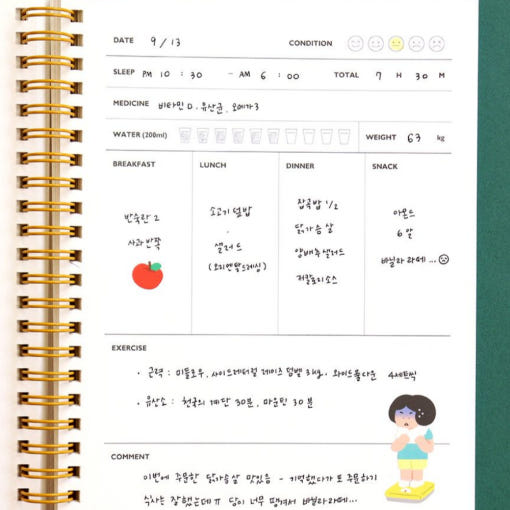 DATE 9 / 13 CONDITION
SLEEP PM 10 : 30 - AM 6 : 00 TOTAL 7 H 30 M
MEDICINE 비타민 D, 유산균, 오메가3
WATER (200ml) WEIGHT 63 kg
BREAKFAST
반숙란 2
사과 반쪽
LUNCH
소고기 덮밥
샐러드
(오리엔탈드레싱)
DINNER
잡곡밥 1/2
닭가슴살
양배추샐러드
저칼로리소스
SNACK
아몬드
6알
바닐라 라떼...
EXERCISE
· 근력 : 미들로우, 사이드레터럴 레이즈 덤벨 3kg, 와이드풀다운 4세트씩
· 유산소 : 천국의 계단 30분, 마운틴 30분
COMMENT
이번에 주문한 닭가슴살 맛있음 - 기억했다가 또 주문하기
식사는 잘했는데ㅠ 당이 너무 땡겨서 바닐라라떼...